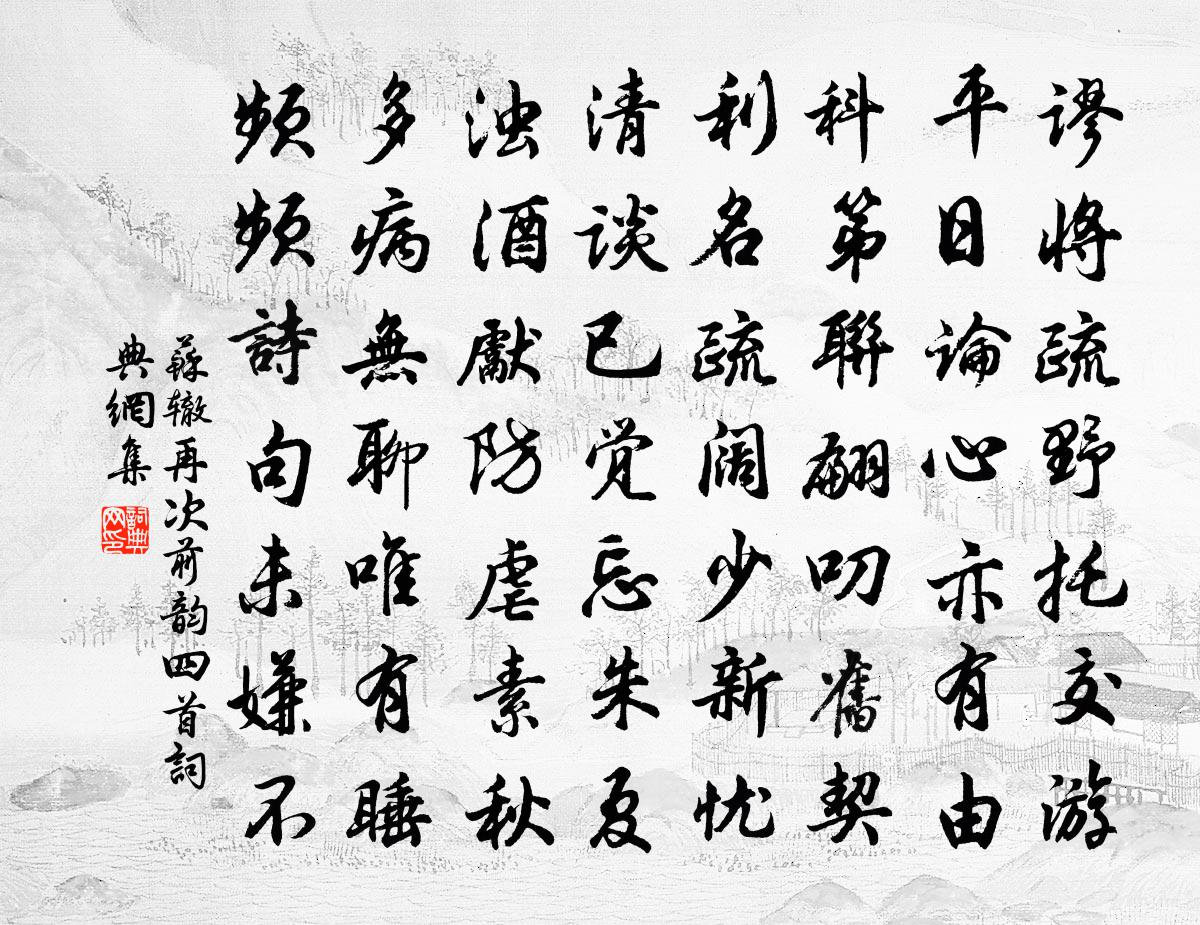 谬将疏野托交游
平日论心亦有由
科第聯翩叨舊契
利名疏阔少新忧
清谈已觉忘朱夏
浊酒獻防虐素秋
多病無聊唯有睡
频频詩句未嫌不
蘇辙再次前韵四首詞
典網集
詞典
网印